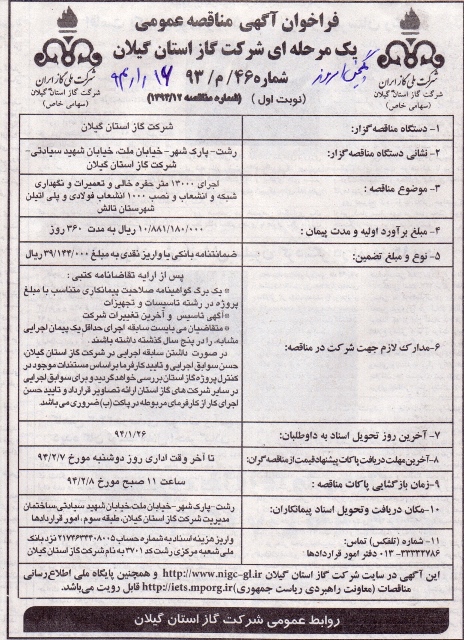 فراخوان آگهی مناقصه عمومی
یک مرحله ای شرکت گاز استان گیلان
شماره ۴۶/م/۹۳
(نوبت اول) (شماره مناقصه ۱۳۹۳/۱۲)
شرکت ملی گاز ایران
شرکت گاز استان گیلان
(سهامی خاص)
شرکت ملی گاز ایران
شرکت گاز استان گیلان
(سهامی خاص)
۱- دستگاه مناقصه گزار:
شرکت گاز استان گیلان
۲- نشانی دستگاه مناقصه گزار:
رشت- پارک شهر- خیابان ملت، خیابان شهید سیادتی-
شرکت گاز استان گیلان
۳- موضوع مناقصه :
اجرای ۱۳۰۰۰ متر حفره خالی و تعمیرات و نگهداری
شبکه و انشعاب و نصب ۱۰۰۰ انشعاب فولادی و پلی اتیلن
شهرستان تالش
۴- مبلغ برآورد اولیه و مدت پیمان :
۱۰/۸۸۱/۱۸۰/۰۰۰ ریال به مدت ۳۶۰ روز
۵- نوع و مبلغ تضمین:
ضمانتنامه بانکی یا واریز نقدی به مبلغ ۳۹/۱۴۴/۰۰۰ ریال
۶-مدارک لازم جهت شرکت در مناقصه:
پس از ارایه تقاضانامه کتبی :
* یک برگ گواهینامه صلاحیت پیمانکاری متناسب با مبلغ
پروژه در رشته تاسیسات و تجهیزات
*آگهی تاسیس و آخرین تغییرات شرکت
* متقاضیان می بایست سابقه اجرای حداقل یک پیمان اجرایی
مشابه، را در پنج سال گذشته داشته باشند.
در صورت داشتن سابقه اجرایی در شرکت گاز استان گیلان،
حسن سوابق اجرایی و تایید کارفرما بر اساس مستندات موجود در
کنترل پروژه گاز استان بررسی خواهد گردید و برای سوابق اجرایی
در سایر شرکت های گاز استان ارائه تصاویر قرارداد و تایید حسن
اجرای کار از کارفرمای مربوطه در پاکت (ب) ضروری می باشد.
۷- آخرین روز تحویل اسناد به داوطلبان:
۹۴/۱/۲۶
۸-آخرین مهلت دریافت پاکات پیشنهاد قیمت از مناقصه گران:
تا آخر وقت اداری روز دوشنبه مورخ ۹۴/۲/۷
۹- زمان بازگشایی پاکات مناقصه :
ساعت ۱۱ صبح مورخ ۹۴/۲/۸
۱۰-مکان دریافت وتحویل اسناد پیمانکاران:
رشت- پارک شهر- خیابان ملت، خیابان شهید سیادتی، ساختمان
مدیریت شرکت گاز استان گیلان، طبقه سوم ، امور قراردادها
۱۱- شماره (تلفکس) تماس:
۰۱۳-۳۳۳۳۲۷۸۶ دفتر امور قراردادها
واریز هزینه اسناد به شماره حساب
ملی شعبه مرکزی رشت کد ۳۷۰۱ به نام شرکت گاز استان گیلان
این آگهی در سایت شرکت گاز استان گیلان http://www.nigc-gl.ir و همچنین پایگاه ملی اطلاع رسانی
مناقصات (معاونت راهبردی ریاست جمهوری) http://iets.mporg.ir قابل رویت می باشد.
روابط عمومی شرکت گاز استان گیلان